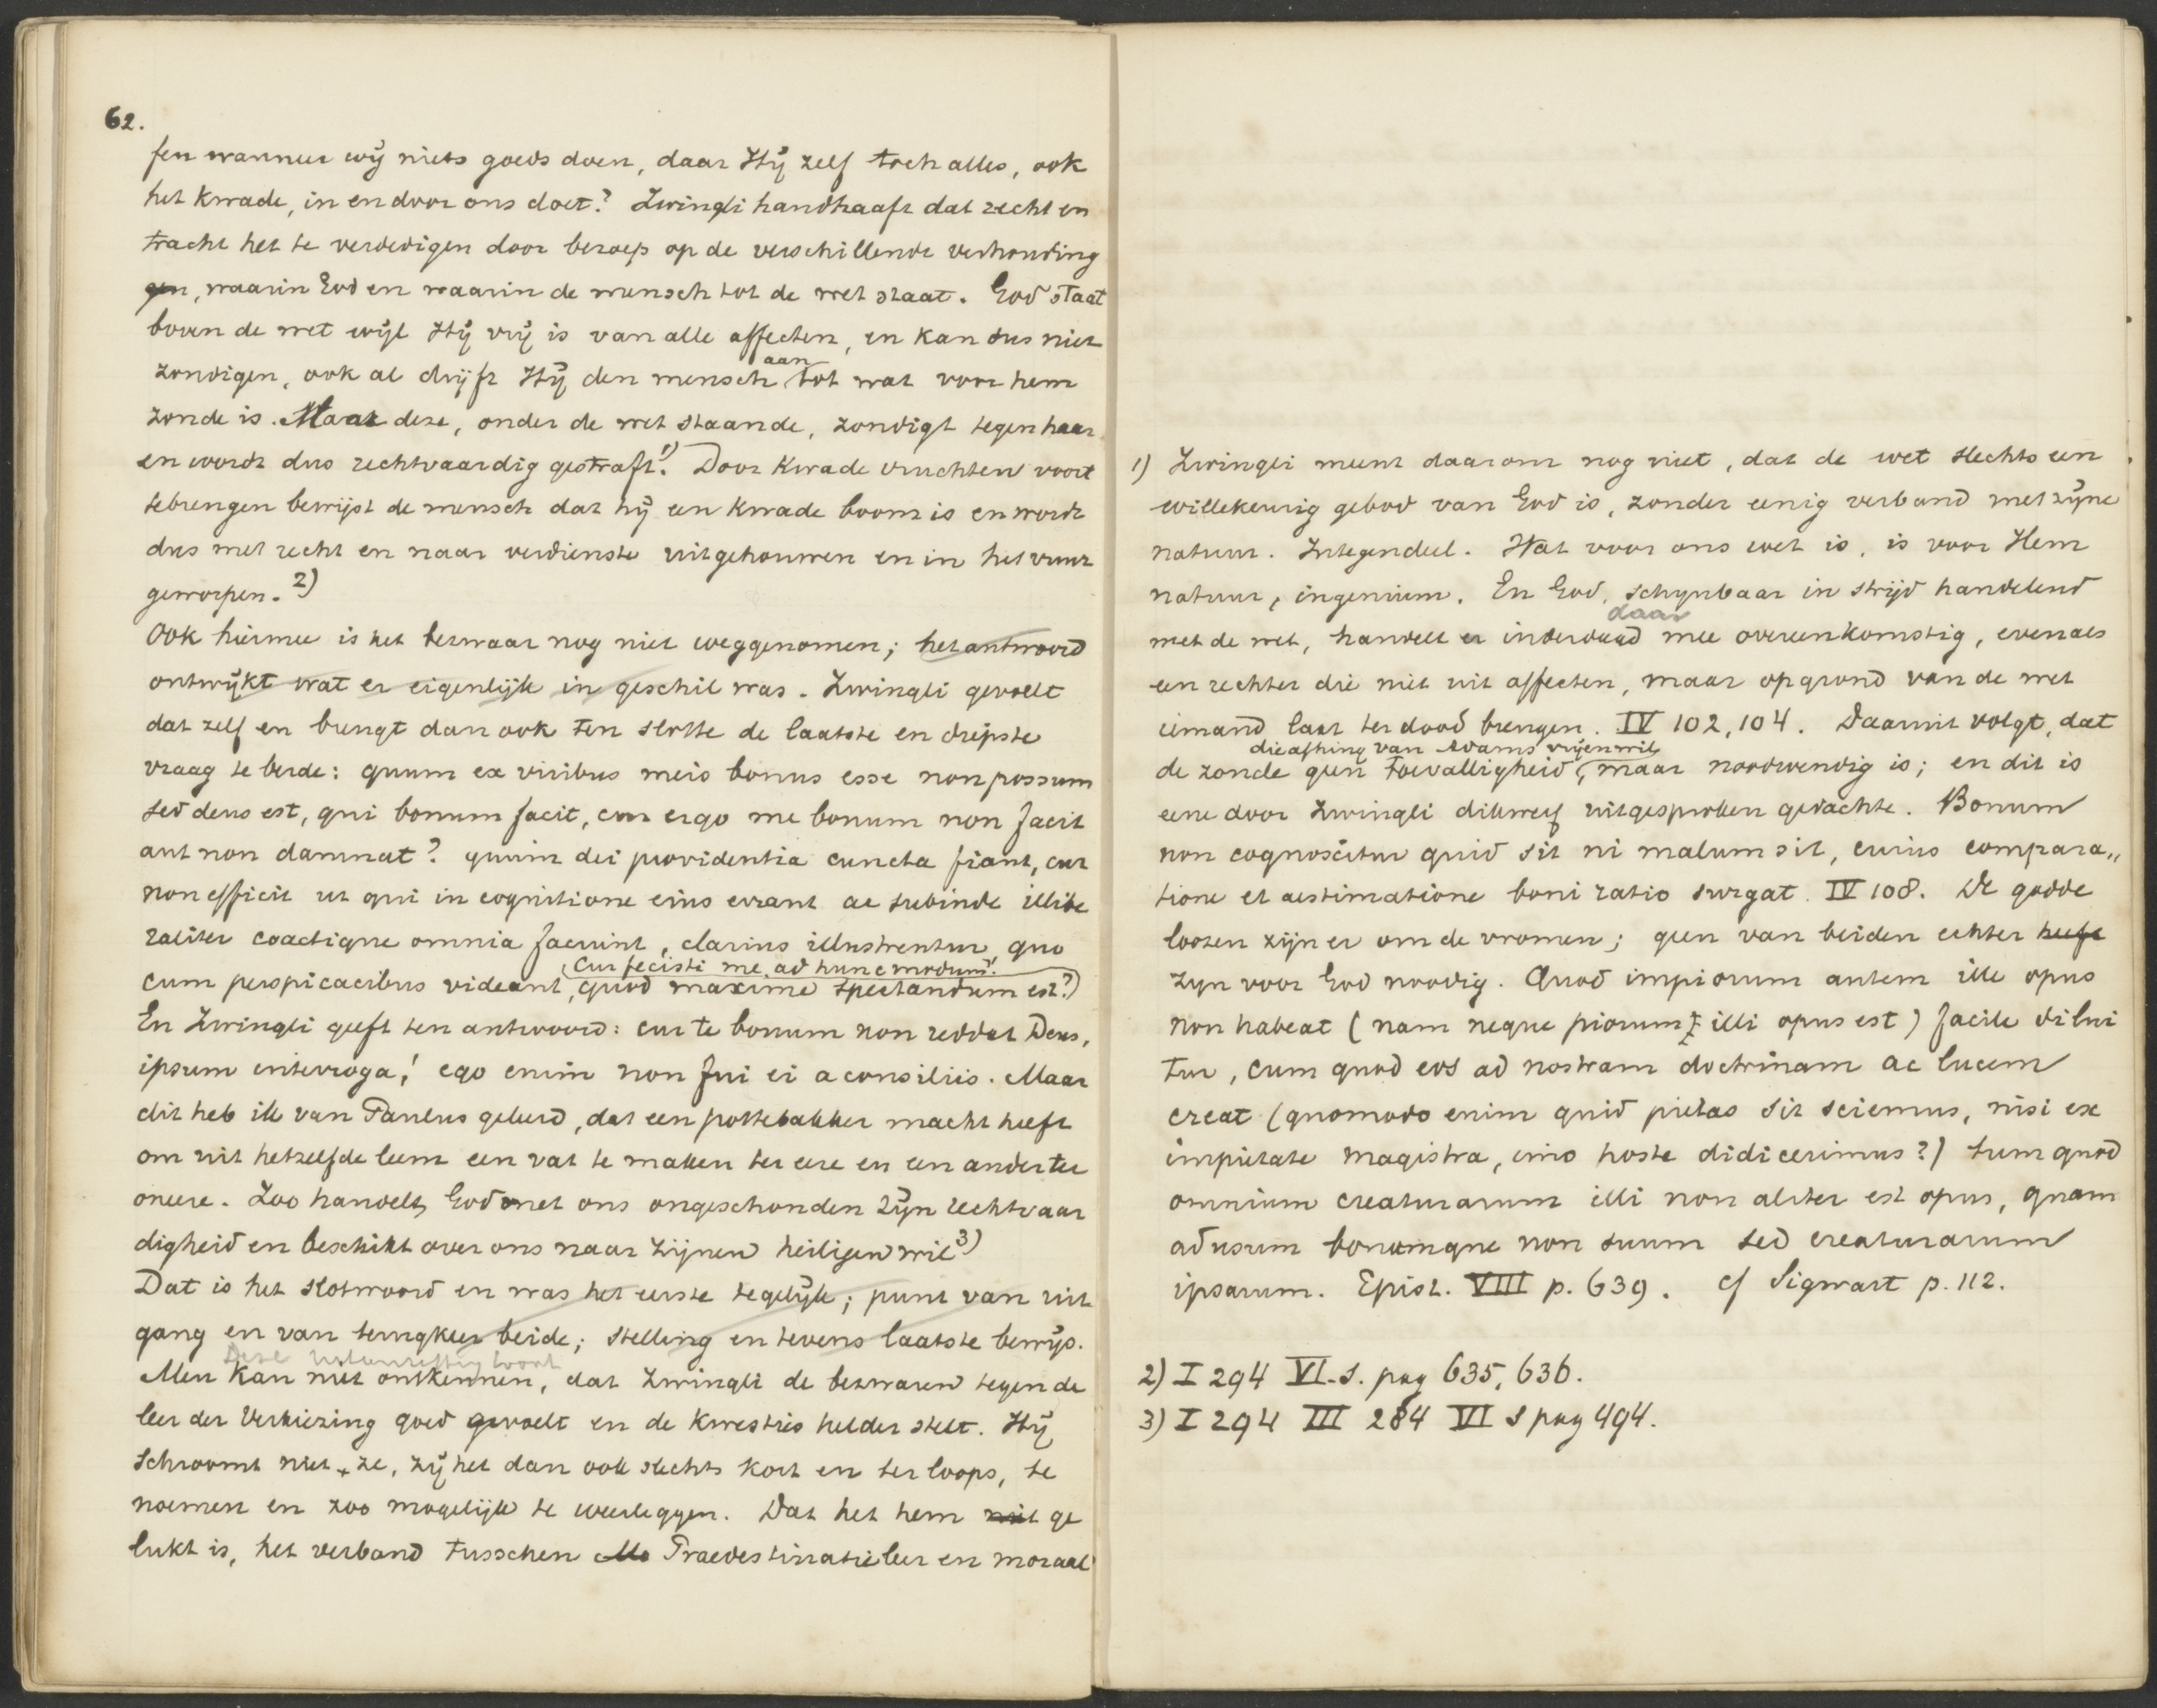 62.
fen wanneer wij niets goeds doen, daar Hij zelf toch alles, ook
het kwade, in en door ons doet? Zwingli handhaaft dat recht en
tracht het te verdedigen door beroep op de verschillende verhouding
gen, waarin God en waarin de mensch tot de wet staat. God staat
boven de wet wijl Hij vrij is van alle affecten, en kan dus niet
aan
zondigen, ook al drijft Hij den mensch tot wat voor hem
zonde is. Maar deze, onder de wet staande, zondigt tegen haar
en wordt dus rechtvaardig gestraft.1) Door kwade vruchten voort
tebrengen bewijst de mensch dat hij een kwade boom is en wordt
dus met recht en naar verdienste uitgehouwen en in het vuur
geworpen.2)
Ook hiermee is het bezwaar nog niet weggenomen; het antwoord
ontwijkt wat er eigenlijk in geschil was. Zwingli gevoelt
dat zelf en brengt dan ook ten slotte de laatste en diepste
vraag te berde: quum ex viribus meis bonus esse non possum
sed deus est, qui bonum facit, cur ergo me bonum non facit
aut non damnat? quum dei providentia cuncta fiant, cur
non efficit ut qui in cognitione eius errant ac subinde illibe
raliter coactique omnia faciunt, clarius illustrentur quo
cur fecisti me ad hunc modum?
cum perspicacibus videant, quod maxime spectandum est?)
En Zwingli geeft ten antwoord: cur te bonum non reddat Deus,
ipsum interroga! ego enim non fui ei a consiliis. Maar
dit heb ik van Paulus geleerd, dat een pottebakker macht heeft
om uit hetzelfde leem een vat te maken ter eere en een ander ter
oneere. Zoo handelt God met ons ongeschonden zijn rechtvaar
digheid en beschikt over ons naar zijnen heiligen wil3)
Dat is het slotwoord en was het eerste tegelijk; punt van uit
gang en van terugkeer beide; stelling en tevens laatste bewijs.
Deze
Men kan niet ontkennen, dat Zwingli de bezwaren tegen de
leer der Verkiezing goed gevoelt en de kwesties helder stelt. Hij
schroomt niet ze, zij het dan ook slechts kort en ter loops, te
noemen en zoo mogelijk te weerleggen. Dat het hem niet ge
lukt is, het verband tusschen Praedestinatieleer en moraal
1) Zwingli meent daarom nog niet, dat de wet slechts een
willekeurig gebod van God is, zonder eenig verband met zijne
natuur. Integendeel. Wat voor ons wet is, is voor Hem
natuur, ingenium. En God, schynbaar in strijd handelend
daar
met de wet, handelt er inderdaad mee overeenkomstig, evenals
een rechter die niet uit affecten, maar op grond van de wet
iemand laat ter dood brengen. IV 102, 104. Daaruit volgt, dat
die afhing van Adams vrijen wil,
de zonde geen toevalligheid, maar noodwendig is; en dit is
eene door Zwingli dikwerf uitgesproken gedachte. Bonum
non cognoscitur quid sit ni malum sit, cuius compara„
tione et aestimatione boni ratio surgat. IV 108. De godde
loozen zijn er om de vromen; geen van beiden echter heeft
zyn voor God noodig. Quod impiorum autem ille opus
non habeat (nam neque piorum illi opus est) facile dilui
tur, cum quod eos ad nostram doctrinam ac lucem
creat (quomodo enim quid pietas sit sciemus, nisi ex
impietate magistra, imo hoste didicerimus?) tum quod
omnium creaturarum illi non aliter est opus, quam
ad usum bonumque non suum sed creaturarum
ipsarum. Epist. VIII p. 639. cf Sigwart p. 112.
2) I 294 VI.s. pag 635, 636.
3) I 294 III 284 VI s pag 494.